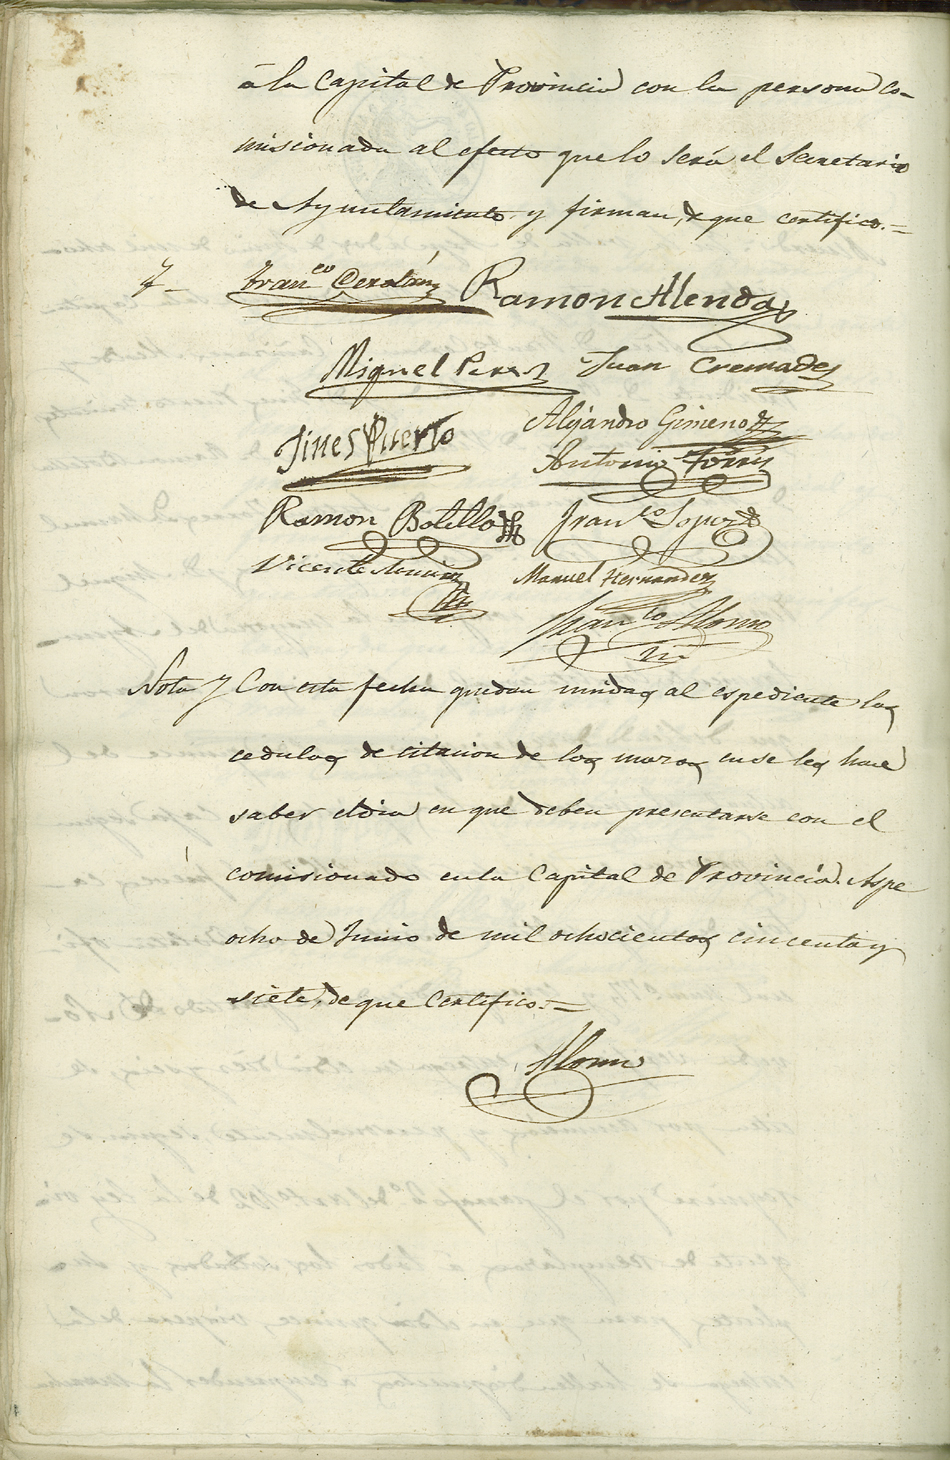 á la Capital de Provincia con la persona co-
misionada al efecto que lo será el Secretario
de Ayuntamiento y firman, de que certifico.=
Fran.co Cerdán Ramon Alenda
Miguel Perez Juan Cremades
Jines Puerto Alejandro Gimeno
Antonio Torres
Ramon Botella Fran.co Lopez
Vicente Manuel Hernandez
Fran.co Alonso
Nota Con esta fecha quedan unidas al espediente las
cedulas de citacion de los mozos en se les hace
saber el dia en que deben presentarse con el
comisionado en la Capital de Provincia. Aspe
ocho de Junio de mil ochocientos cincuenta y
siete, de que certifico.=
Alonso